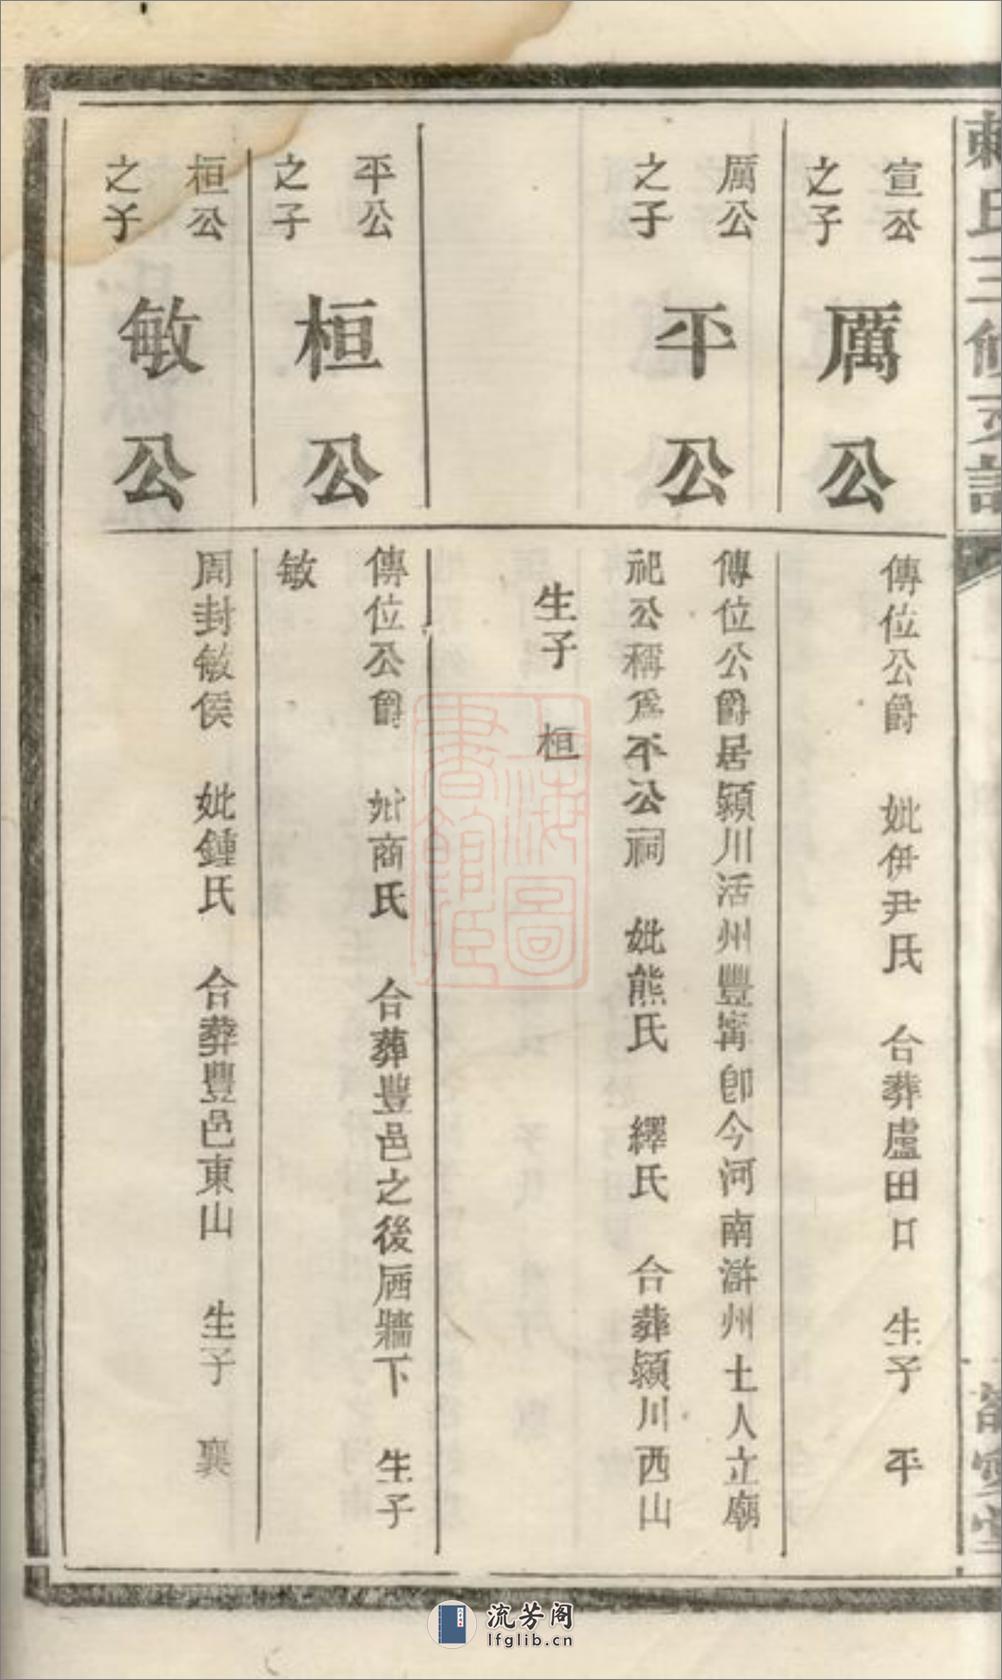 賴氏三修支譜
宣公
之子
厲公
傳位公爵 妣伊尹氏 合葬盧田口 生子 平
厲公
之子
平公
傳位公爵居潁川活州豐甯卽今河南滸州士人立廟
祀公稱爲平公祠 妣熊氏 繹氏 合葬潁川西山
生子 桓
平公
之子
桓公
傳位公爵 妣商氏 合葬豐邑之後廼牆下 生子
敏
桓公
之子
敏公
周封敏侯 妣鍾氏 合葬豐邑東山 生子 襄
愛堂
上海圖書館藏
流芳阁
lfglib.cn